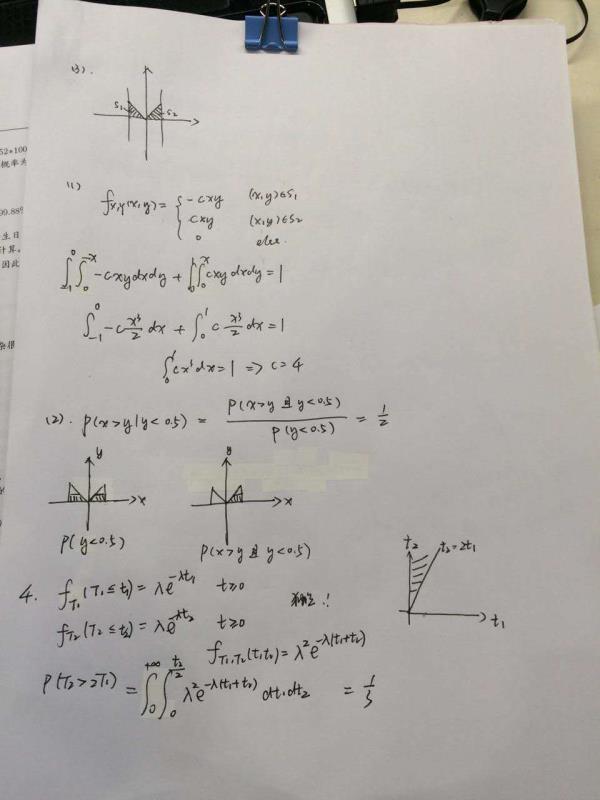 (3).
S₁ S₂
(1)
f_{X,Y}(x,y) = { -cxy (x,y)∈S₁
cxy (x,y)∈S₂
0 else.
∫_{-1}^{0}∫_{0}^{-x} -cxy dxdy + ∫_{0}^{1}∫_{0}^{x} cxy dxdy = 1
∫_{-1}^{0} -c x³/2 dx + ∫_{0}^{1} c x³/2 dx = 1
∫_{0}^{1} cx³ dx = 1 => c = 4
(2). P(x>y|y<0.5) = P(x>y 且 y<0.5) / P(y<0.5) = 1/2
y y
x x
P(y<0.5)
P(x>y 且 y<0.5)
t₂ t₂=2t₁
t₁
4. f_{T₁}(T₁≤t₁) = λe^{-λt₁} t≥0
独立!
f_{T₂}(T₂≤t₂) = λe^{-λt₂} t≥0
f_{T₁,T₂}(t₁,t₂) = λ²e^{-λ(t₁+t₂)}
P(T₂>2T₁) = ∫_{0}^{+∞}∫_{0}^{t₂/2} λ²e^{-λ(t₁+t₂)} dt₁dt₂ = 1/3
52*100
概率为
99.88%
生日
计算,
因此